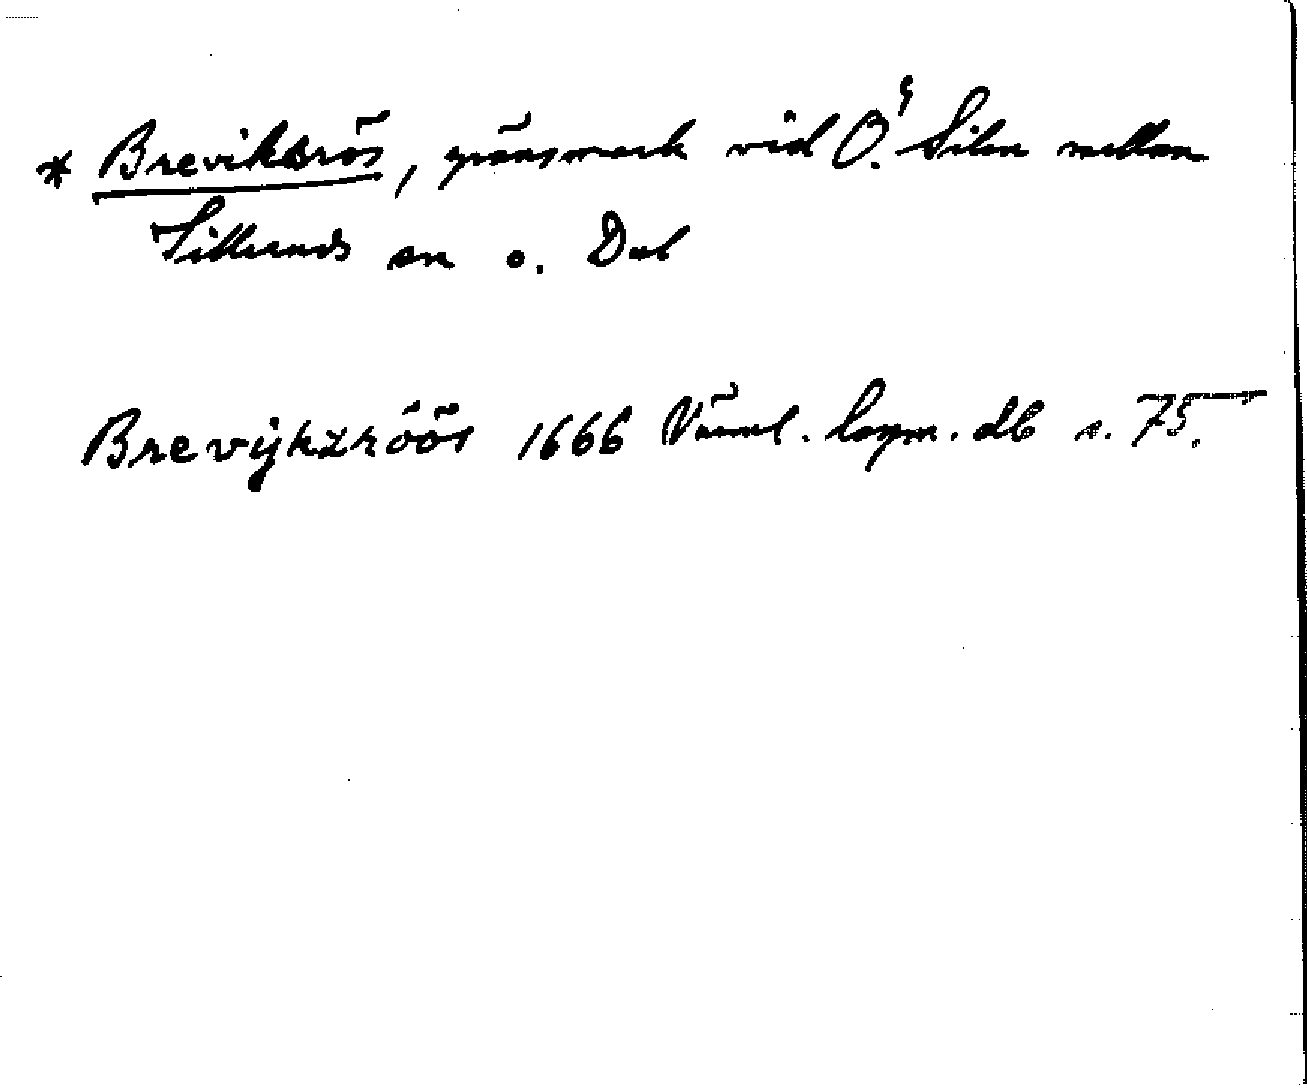 * Breviksrös, gränsmark vid Ö. Silen mellan
Silleruds sn o. Dal
Brevÿkzröös 1666 Värml. lagm. db s. 75.